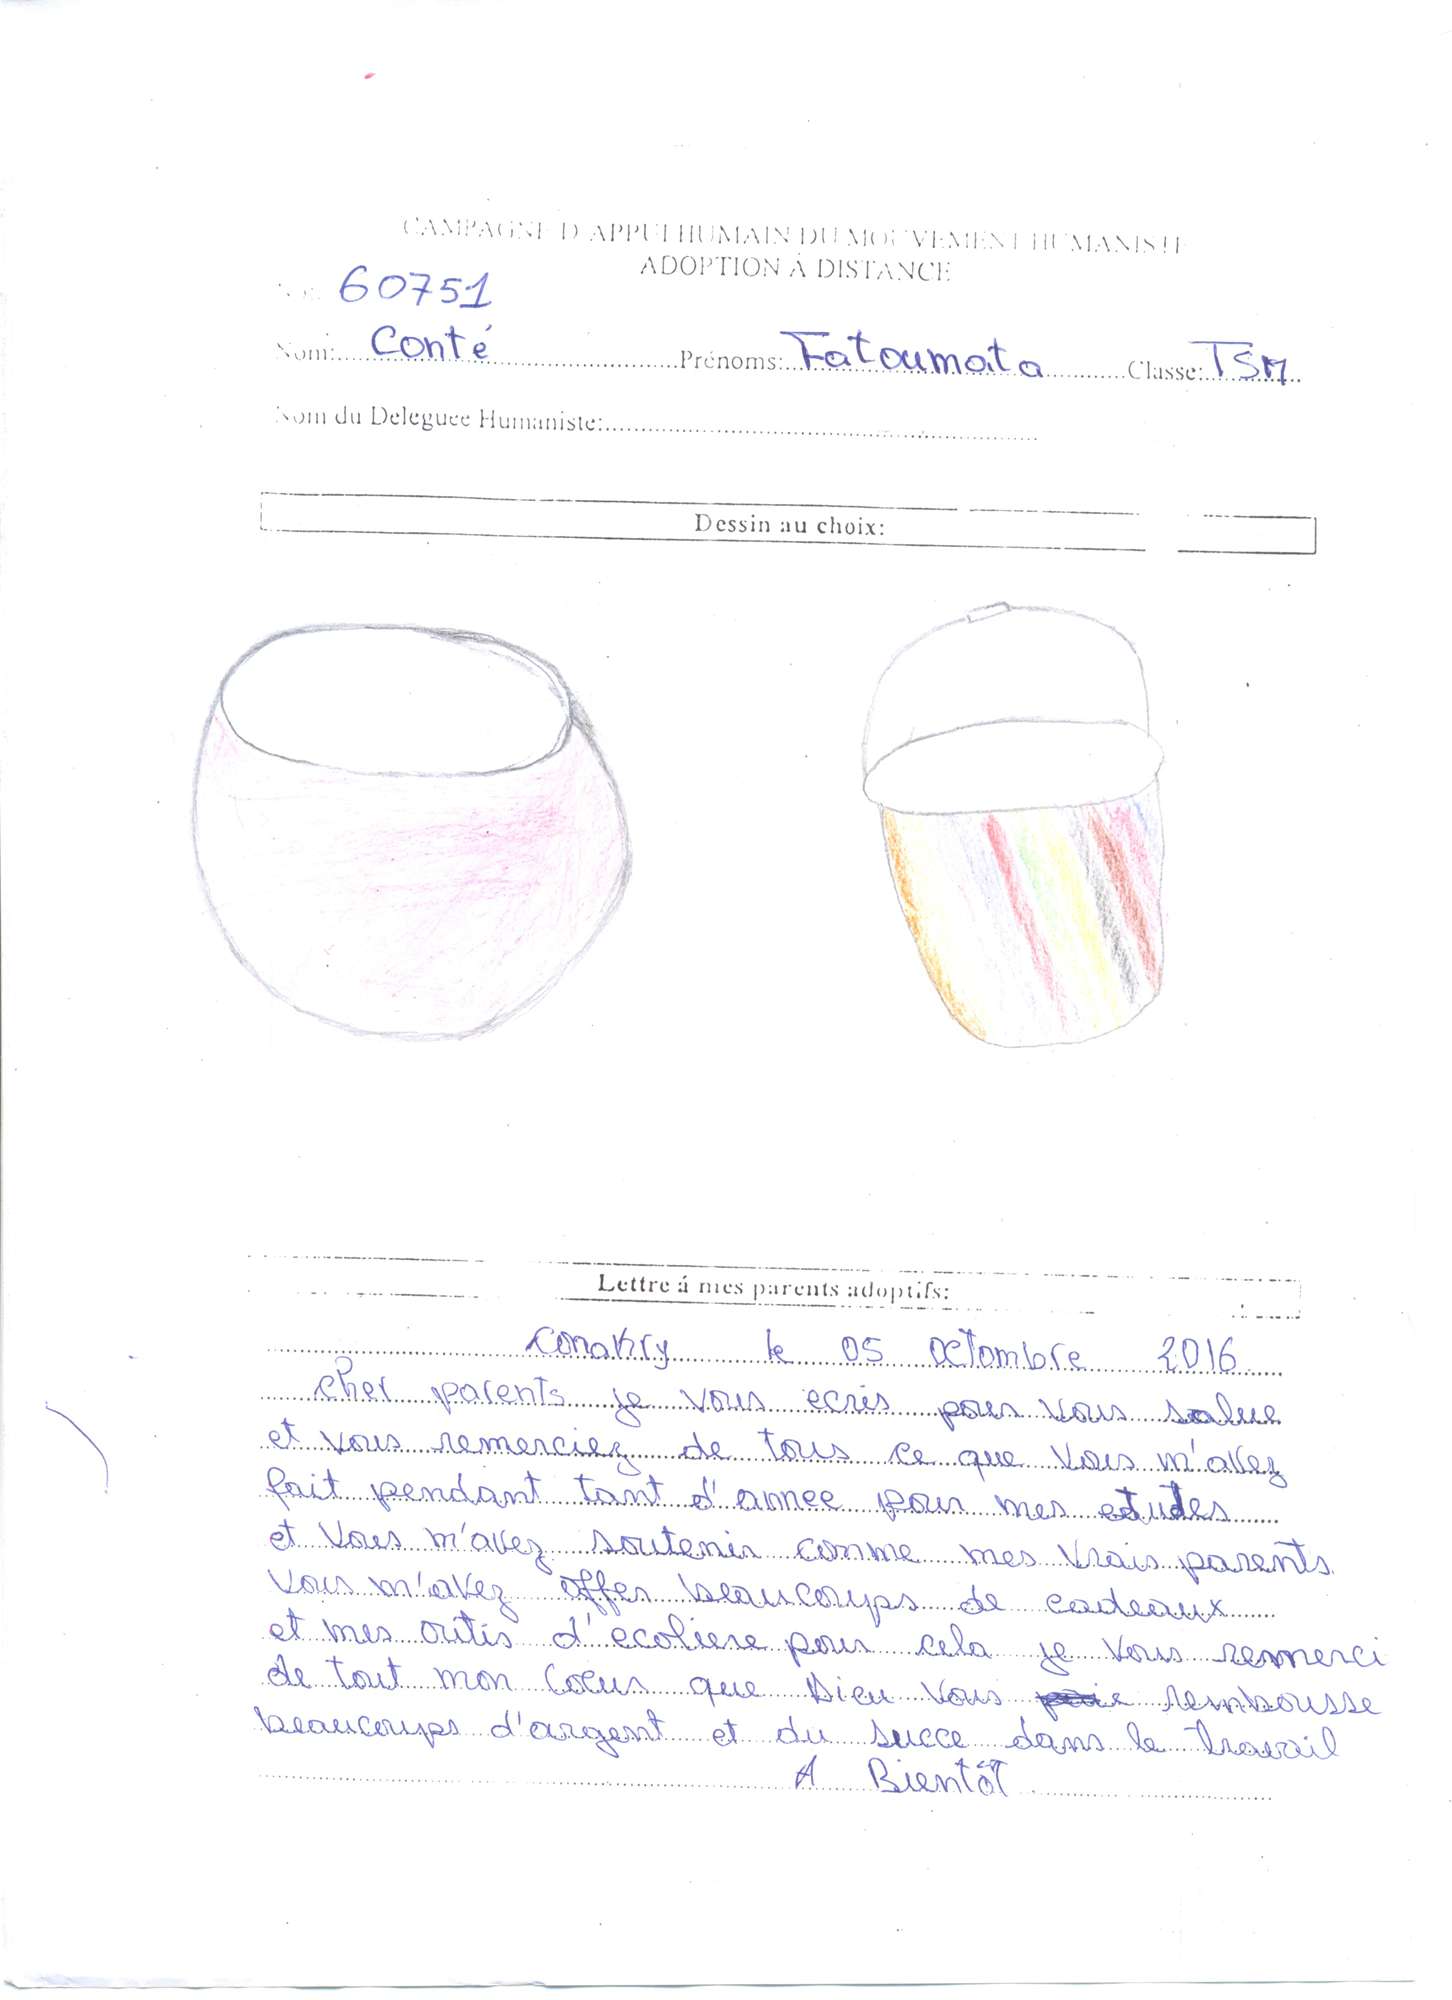 CAMPAGNE D'APPUI HUMAIN DU MOUVEMENT HUMANISTE
ADOPTION À DISTANCE
60751
Nom: Conté Prénoms: Fatoumata Classe: TSM
Nom du Deleguee Humaniste:
Dessin au choix:
Lettre á mes parents adoptifs:
Conakry le 05 octombre 2016
cher parents je vous ecris pour vous salue
et vous remerciez de tous ce que vous m'avez
fait pendant tant d'annee pour mes etudes
et vous m'avez soutenir comme mes vrais parents
vous m'avez offer beaucoups de cadeaux
et mes outis d'ecoliere pour cela je vous remerci
de tout mon coeur que Dieu vous rembousse
beaucoups d'argent et du succe dans le travail
A Bientôt